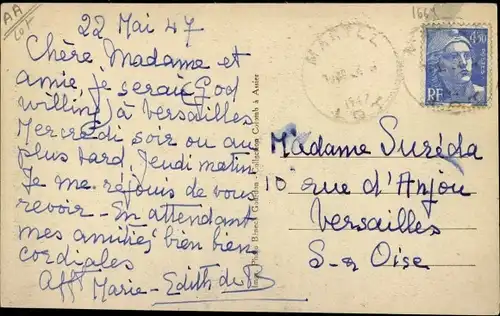 AA
LOT
22 Mai 47
Chère Madame et
amie, je serai (God
willing) à Versailles
Mercredi soir ou au
plus tard Jeudi matin
Je me réjouis de vous
revoir - En attendant
mes amitiés bien bien
cordiales
Aff Marie-Edith de B
Collection Colomb à Assier
MARTEL
1947
LOT
4F50
POSTES
RF
Madame Suréda
10 rue d'Anjou
Versailles
S-&-Oise